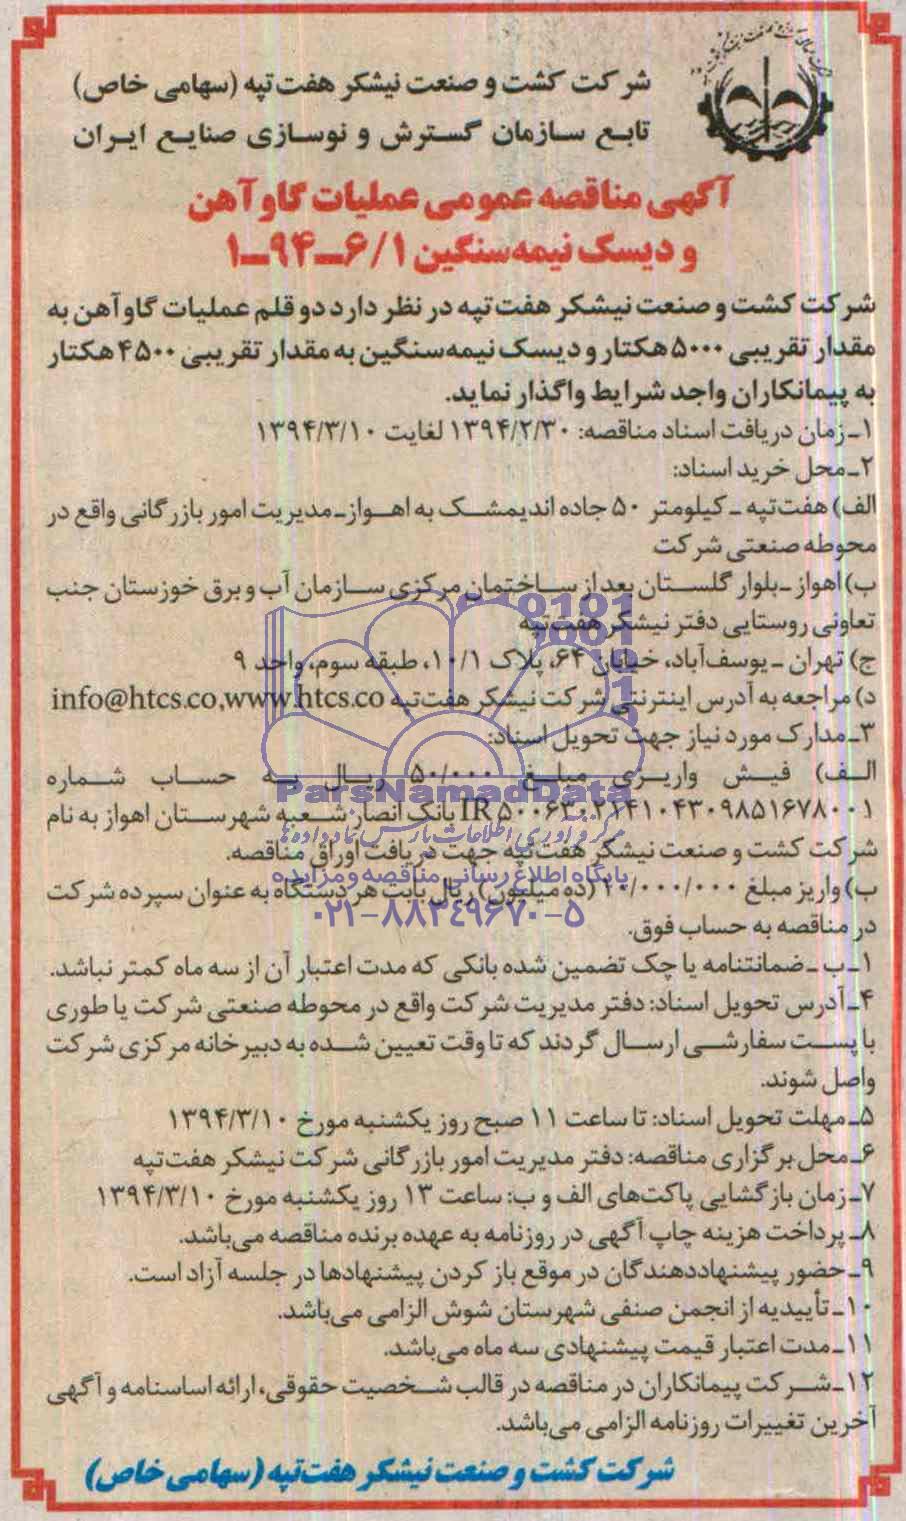 شرکت کشت و صنعت نیشکر هفت‌تپه (سهامی خاص)
تابع سازمان گسترش و نوسازی صنایع ایران
آگهی مناقصه عمومی عملیات گاوآهن
و دیسک نیمه‌سنگین ۶/۱-۹۴-۱
شرکت کشت و صنعت نیشکر هفت‌تپه در نظر دارد دو قلم عملیات گاوآهن به
مقدار تقریبی ۵۰۰۰ هکتار و دیسک نیمه‌سنگین به مقدار تقریبی ۴۵۰۰ هکتار
به پیمانکاران واجد شرایط واگذار نماید.
۱ـ زمان دریافت اسناد مناقصه: ۱۳۹۴/۲/۳۰ لغایت ۱۳۹۴/۳/۱۰
۲ـ محل خرید اسناد:
الف) هفت‌تپه ـ کیلومتر ۵۰ جاده اندیمشک به اهواز ـ مدیریت امور بازرگانی واقع در
محوطه صنعتی شرکت
ب) اهواز ـ بلوار گلستان بعد از ساختمان مرکزی سازمان آب و برق خوزستان جنب
تعاونی روستایی دفتر نیشکر هفت‌تپه
ج) تهران ـ یوسف‌آباد، خیابان ۶۴، پلاک ۱۰/۱، طبقه سوم، واحد ۹
د) مراجعه به آدرس اینترنتی شرکت نیشکر هفت‌تپه info@htcs.co,www.htcs.co
۳ـ مدارک مورد نیاز جهت تحویل اسناد:
الف) فیش واریزی مبلغ ۵۰/۰۰۰ ریال به حساب شماره
IR ۵۰۰۶۳۰۲۱۴۱۰۴۳۰۹۸۵۱۶۷۸۰۰۱ بانک انصار شعبه شهرستان اهواز به نام
شرکت کشت و صنعت نیشکر هفت‌تپه جهت دریافت اوراق مناقصه.
ب) واریز مبلغ ۱۰/۰۰۰/۰۰۰ (ده میلیون) ریال بابت هر دستگاه به عنوان سپرده شرکت
در مناقصه به حساب فوق.
۱ـ ب ـ ضمانتنامه یا چک تضمین شده بانکی که مدت اعتبار آن از سه ماه کمتر نباشد.
۴ـ آدرس تحویل اسناد: دفتر مدیریت شرکت واقع در محوطه صنعتی شرکت یا طوری
با پست سفارشی ارسال گردند که تا وقت تعیین شده به دبیرخانه مرکزی شرکت
واصل شوند.
۵ـ مهلت تحویل اسناد: تا ساعت ۱۱ صبح روز یکشنبه مورخ ۱۳۹۴/۳/۱۰
۶ـ محل برگزاری مناقصه: دفتر مدیریت امور بازرگانی شرکت نیشکر هفت‌تپه
۷ـ زمان بازگشایی پاکت‌های الف و ب: ساعت ۱۳ روز یکشنبه مورخ ۱۳۹۴/۳/۱۰
۸ـ پرداخت هزینه چاپ آگهی در روزنامه به عهده برنده مناقصه می‌باشد.
۹ـ حضور پیشنهاددهندگان در موقع باز کردن پیشنهادها در جلسه آزاد است.
۱۰ـ تأییدیه از انجمن صنفی شهرستان شوش الزامی می‌باشد.
۱۱ـ مدت اعتبار قیمت پیشنهادی سه ماه می‌باشد.
۱۲ـ شرکت پیمانکاران در مناقصه در قالب شخصیت حقوقی، ارائه اساسنامه و آگهی
آخرین تغییرات روزنامه الزامی می‌باشد.
شرکت کشت و صنعت نیشکر هفت‌تپه (سهامی خاص)
ParsNamadData
مرکز فرآوری اطلاعات پارس نماد داده‌ها
پایگاه اطلاع رسانی مناقصه و مزایده
۰۲۱-۸۸۳۴۹۶۷۰-۵